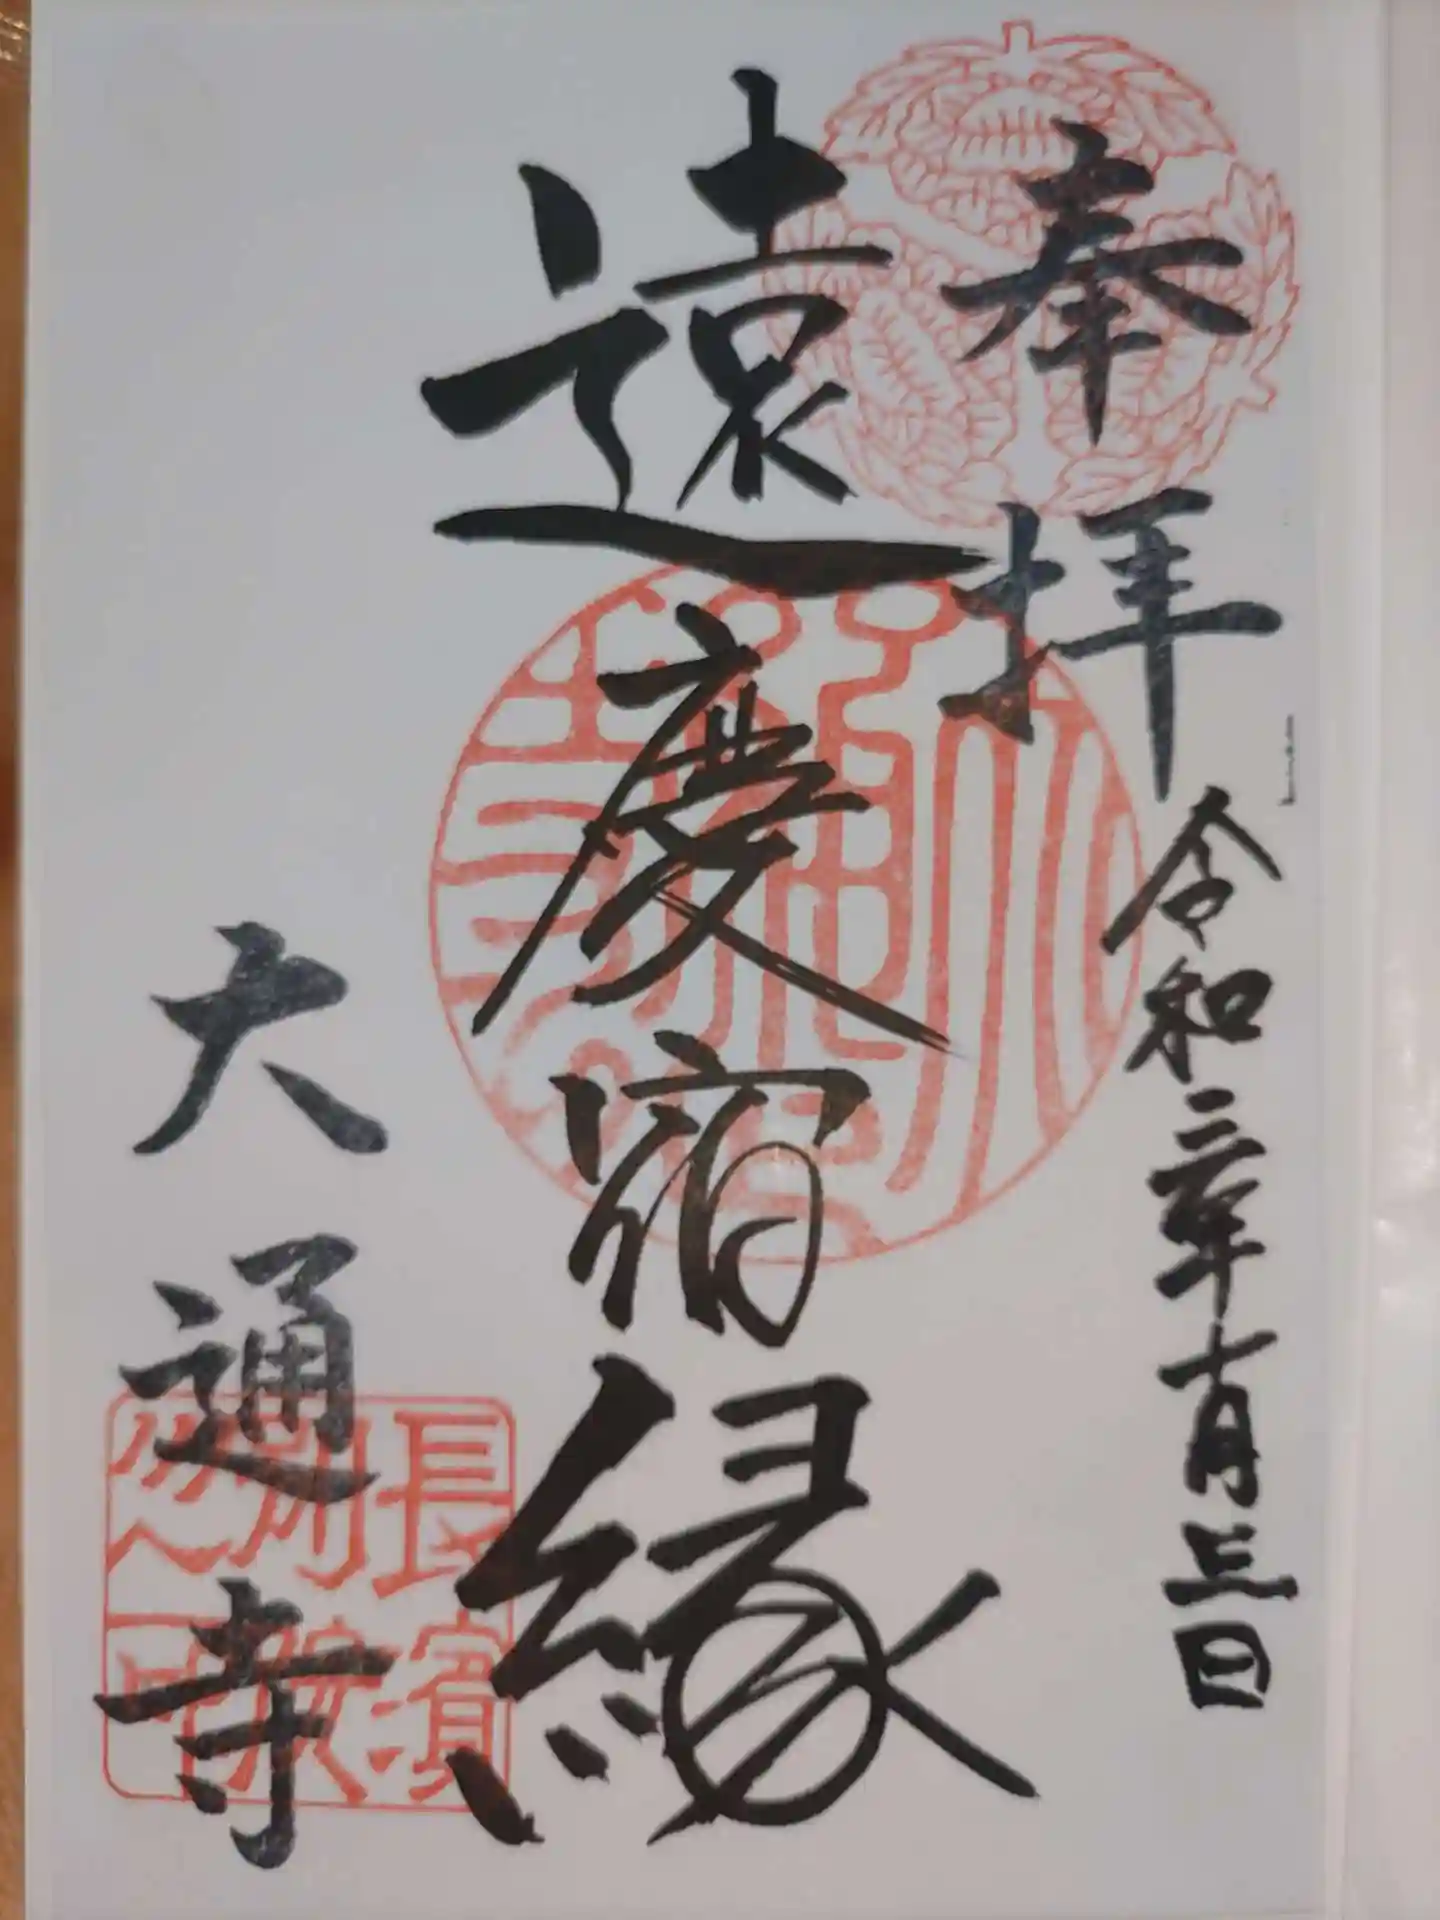 奉拝
令和三年十月三日
遠慶宿縁
大通寺
長濱
別院